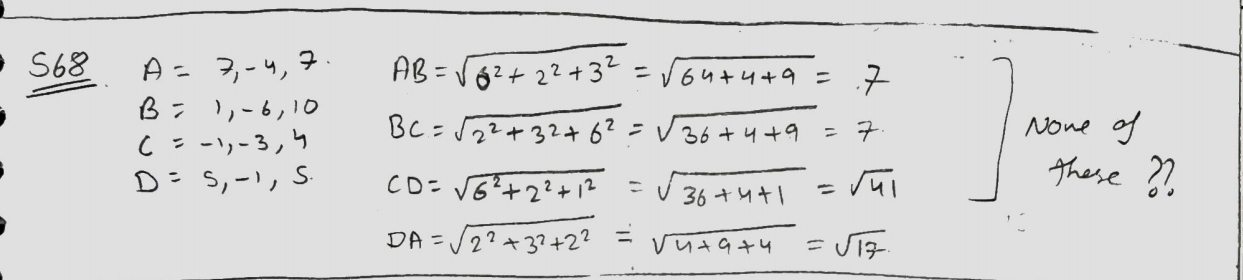 S68
A = 7,-4, 7.
B = 1,-6,10
C = -1,-3,4
D = 5,-1, 5.
AB = √6²+ 2²+3² = √64+4+9 = 7
BC = √2²+3²+6² = √36+4+9 = 7.
CD = √6²+2²+1² = √36+4+1 = √41
DA = √2²+3²+2² = √4+9+4 = √17.
None of
these ??